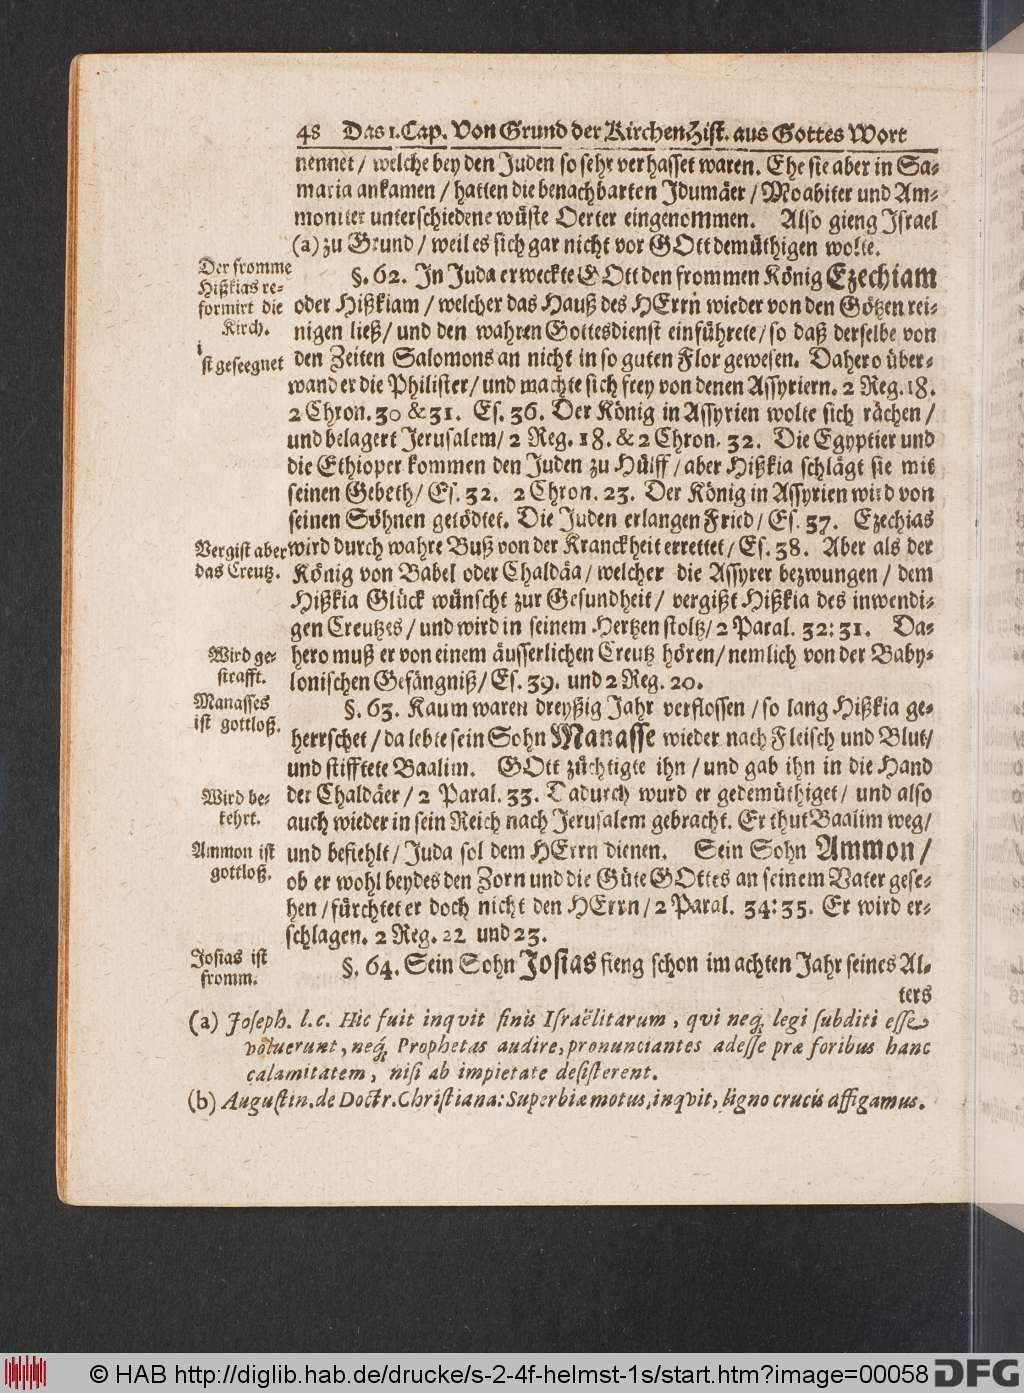 48 Das 1. Cap. Von Grund der Kirchen Hist. aus Gottes Wort
nennet / welche bey den Juden so sehr verhasset waren. Ehe sie aber in Sa-
maria ankamen / hatten die benachbarten Idumäer / Moabiter und Am-
moniter unterschiedene wüste Oerter eingenommen. Also gieng Israel
(a) zu Grund / weil es sich gar nicht vor GOtt demüthigen wolte.
Der fromme
Hißkias re-
formirt die
Kirch.
ist geseegnet
§. 62. In Juda erweckte GOtt den frommen König Ezechiam
oder Hißkiam / welcher das Hauß des HErrn wieder von den Götzen rei-
nigen ließ / und den wahren Gottesdienst einführete / so daß derselbe von
den Zeiten Salomons an nicht in so guten Flor gewesen. Dahero über-
wand er die Philister / und machte sich frey von denen Assyriern. 2 Reg. 18.
2 Chron. 30 & 31. Es. 36. Der König in Assyrien wolte sich rächen /
und belagert Jerusalem / 2 Reg. 18. & 2 Chron. 32. Die Egyptier und
die Ethioper kommen den Juden zu Hülff / aber Hißkia schlägt sie mit
seinen Gebeth / Es. 32. 2 Chron. 23. Der König in Assyrien wird von
seinen Söhnen getödtet. Die Juden erlangen Fried / Es. 37. Ezechias
Vergist aber
das Creutz.
wird durch wahre Buß von der Kranckheit errettet / Es. 38. Aber als der
König von Babel oder Chaldäa / welcher die Assyrer bezwungen / dem
Hißkia Glück wünscht zur Gesundheit / vergißt Hißkia des inwendi-
gen Creutzes / und wird in seinem Hertzen stoltz / 2 Paral. 32: 31. Da-
Wird ge-
strafft.
hero muß er von einem äusserlichen Creutz hören / nemlich von der Baby-
lonischen Gefängniß / Es. 39. und 2 Reg. 20.
Manasses
ist gottloß.
§. 63. Kaum waren dreyßig Jahr verflossen / so lang Hißkia ge-
herrschet / da lebte sein Sohn Manasse wieder nach Fleisch und Blut /
und stifftete Baalim. GOtt züchtigte ihn / und gab ihn in die Hand
Wird be-
kehrt.
der Chaldäer / 2 Paral. 33. Dadurch wurd er gedemüthiget / und also
auch wieder in sein Reich nach Jerusalem gebracht. Er thut Baalim weg /
Ammon ist
gottloß.
und befiehlt / Juda sol dem HErrn dienen. Sein Sohn Ammon /
ob er wohl beydes den Zorn und die Güte GOttes an seinem Vater gese-
hen / fürchtet er doch nicht den HErrn / 2 Paral. 34: 35. Er wird er-
schlagen. 2 Reg. 22 und 23.
Josias ist
fromm.
§. 64. Sein Sohn Josias fieng schon im achten Jahr seines Al-
ters
(a) Joseph. l. c. Hic fuit inqvit finis Israëlitarum, qvi neq; legi subditi esse
voluerunt, neq; Prophetas audire, pronunciantes adesse præ foribus hanc
calamitatem, nisi ab impietate desisterent.
(b) Augustin. de Doctr. Christiana: Superbiæ motus, inqvit, ligno crucis affigamus.
© HAB http://diglib.hab.de/drucke/s-2-4f-helmst-1s/start.htm?image=00058 DFG